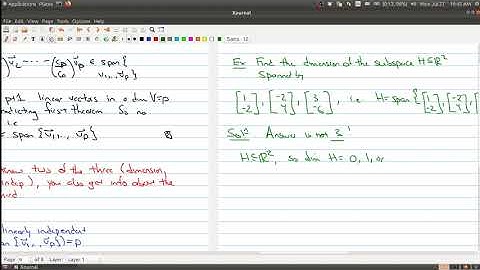 Applications Places
Xournal
(0:13, 98%) Mon Jul 27 10:43 AM
File Edit View Journal Tools Options Help
Sans 12
v⃗₂ ... (Sp/C₀) v⃗p ∈ span{
v₁,..,v⃗p}
p+1 linear vectors in a dim V=p
dicting first theorem. So no
i.e
= span {v⃗₁,.., v⃗p}
know two of the three (dimension,
indep), you also get info about the
linearly independent
({v⃗₁,..,v⃗p})=p
Ex Find the dimension of the subspace H⊆ℝ²
Spanned by
[1 -2], [-2 4], [3 -6], i.e H=span{[1 -2],[-2 4],
Solⁿ Answer is not 3!
H⊆ℝ², so dim H= 0, 1, or
Page of 8 Layer: Layer 1
Xournal